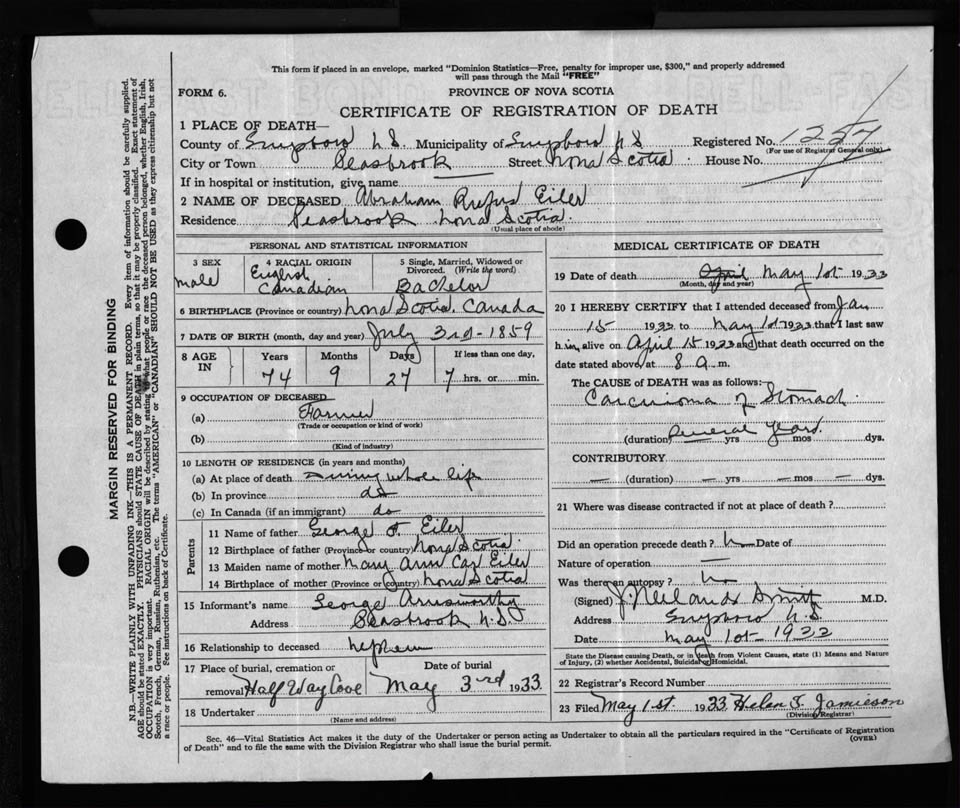 This form if placed in an envelope, marked "Dominion Statistics—Free, penalty for improper use, $300," and properly addressed
will pass through the Mail "FREE"
FORM 6.
PROVINCE OF NOVA SCOTIA
CERTIFICATE OF REGISTRATION OF DEATH
1 PLACE OF DEATH—
County of N.S. Municipality of N S Registered No. 1257
(For use of Registrar General only)
City or Town Seasbrook Street Nova Scotia House No.
If in hospital or institution, give name
2 NAME OF DECEASED Abraham Rufus Eiler
Residence Seasbrook Nova Scotia
(Usual place of abode)
PERSONAL AND STATISTICAL INFORMATION
3 SEX male
4 RACIAL ORIGIN English Canadian
5 Single, Married, Widowed or Divorced. (Write the word) Bachelor
6 BIRTHPLACE (Province or country) Nova Scotia, Canada
7 DATE OF BIRTH (month, day and year) July 3rd - 1859
8 AGE IN
Years Months Days If less than one day,
74 9 27 7 hrs. or min.
9 OCCUPATION OF DECEASED
(a) Farmer
(Trade or occupation or kind of work)
(b)
(Kind of industry)
10 LENGTH OF RESIDENCE (in years and months)
(a) At place of death during whole life
(b) In province do
(c) In Canada (if an immigrant) do
Parents
11 Name of father George F. Eiler
12 Birthplace of father (Province or country) Nova Scotia
13 Maiden name of mother Mary Ann Eiler
14 Birthplace of mother (Province or country) Nova Scotia
15 Informant's name George
Address Seasbrook N.S
16 Relationship to deceased nephew
17 Place of burial, cremation or removal Half Way Cove
Date of burial May 3rd 1933
18 Undertaker
(Name and address)
MEDICAL CERTIFICATE OF DEATH
19 Date of death April May 1st 1933
(Month, day and year)
20 I HEREBY CERTIFY that I attended deceased from Jan
15 1933 to May 1st 1933 that I last saw
him alive on April 15 1933 and that death occurred on the
date stated above, at 8 a m.
The CAUSE OF DEATH was as follows:
Carcinoma of Stomach
(duration) Several yrs Years mos dys.
CONTRIBUTORY
— (duration) — yrs — mos — dys.
21 Where was disease contracted if not at place of death?
Did an operation precede death? no Date of
Nature of operation —
Was there an autopsy? no
(Signed) M.D.
Address N S
Date May 1st 1933
State the Disease causing Death, or in death from Violent Causes, state (1) Means and Nature of Injury, (2) whether Accidental, Suicidal or Homicidal.
22 Registrar's Record Number
23 Filed May 1.st 1933 Helen Jamieson
(Division Registrar)
Sec. 46—Vital Statistics Act makes it the duty of the Undertaker or person acting as Undertaker to obtain all the particulars required in the "Certificate of Registration
of Death" and to file the same with the Division Registrar who shall issue the burial permit.
(OVER)
MARGIN RESERVED FOR BINDING
N.B.—WRITE PLAINLY WITH UNFADING INK—THIS IS A PERMANENT RECORD. Every item of information should be carefully supplied.
AGE should be stated EXACTLY. PHYSICIANS should STATE CAUSE OF DEATH in plain terms, so that it may be properly classified. Exact statement of
OCCUPATION is very important. RACIAL ORIGIN will be described by stating to what people or race the deceased person belonged, whether English, Irish,
Scotch, French, German, Russian, Ruthenian, etc. The terms "AMERICAN" or "CANADIAN" SHOULD NOT BE USED as they express citizenship but not
a race or people. See instructions on back of Certificate.